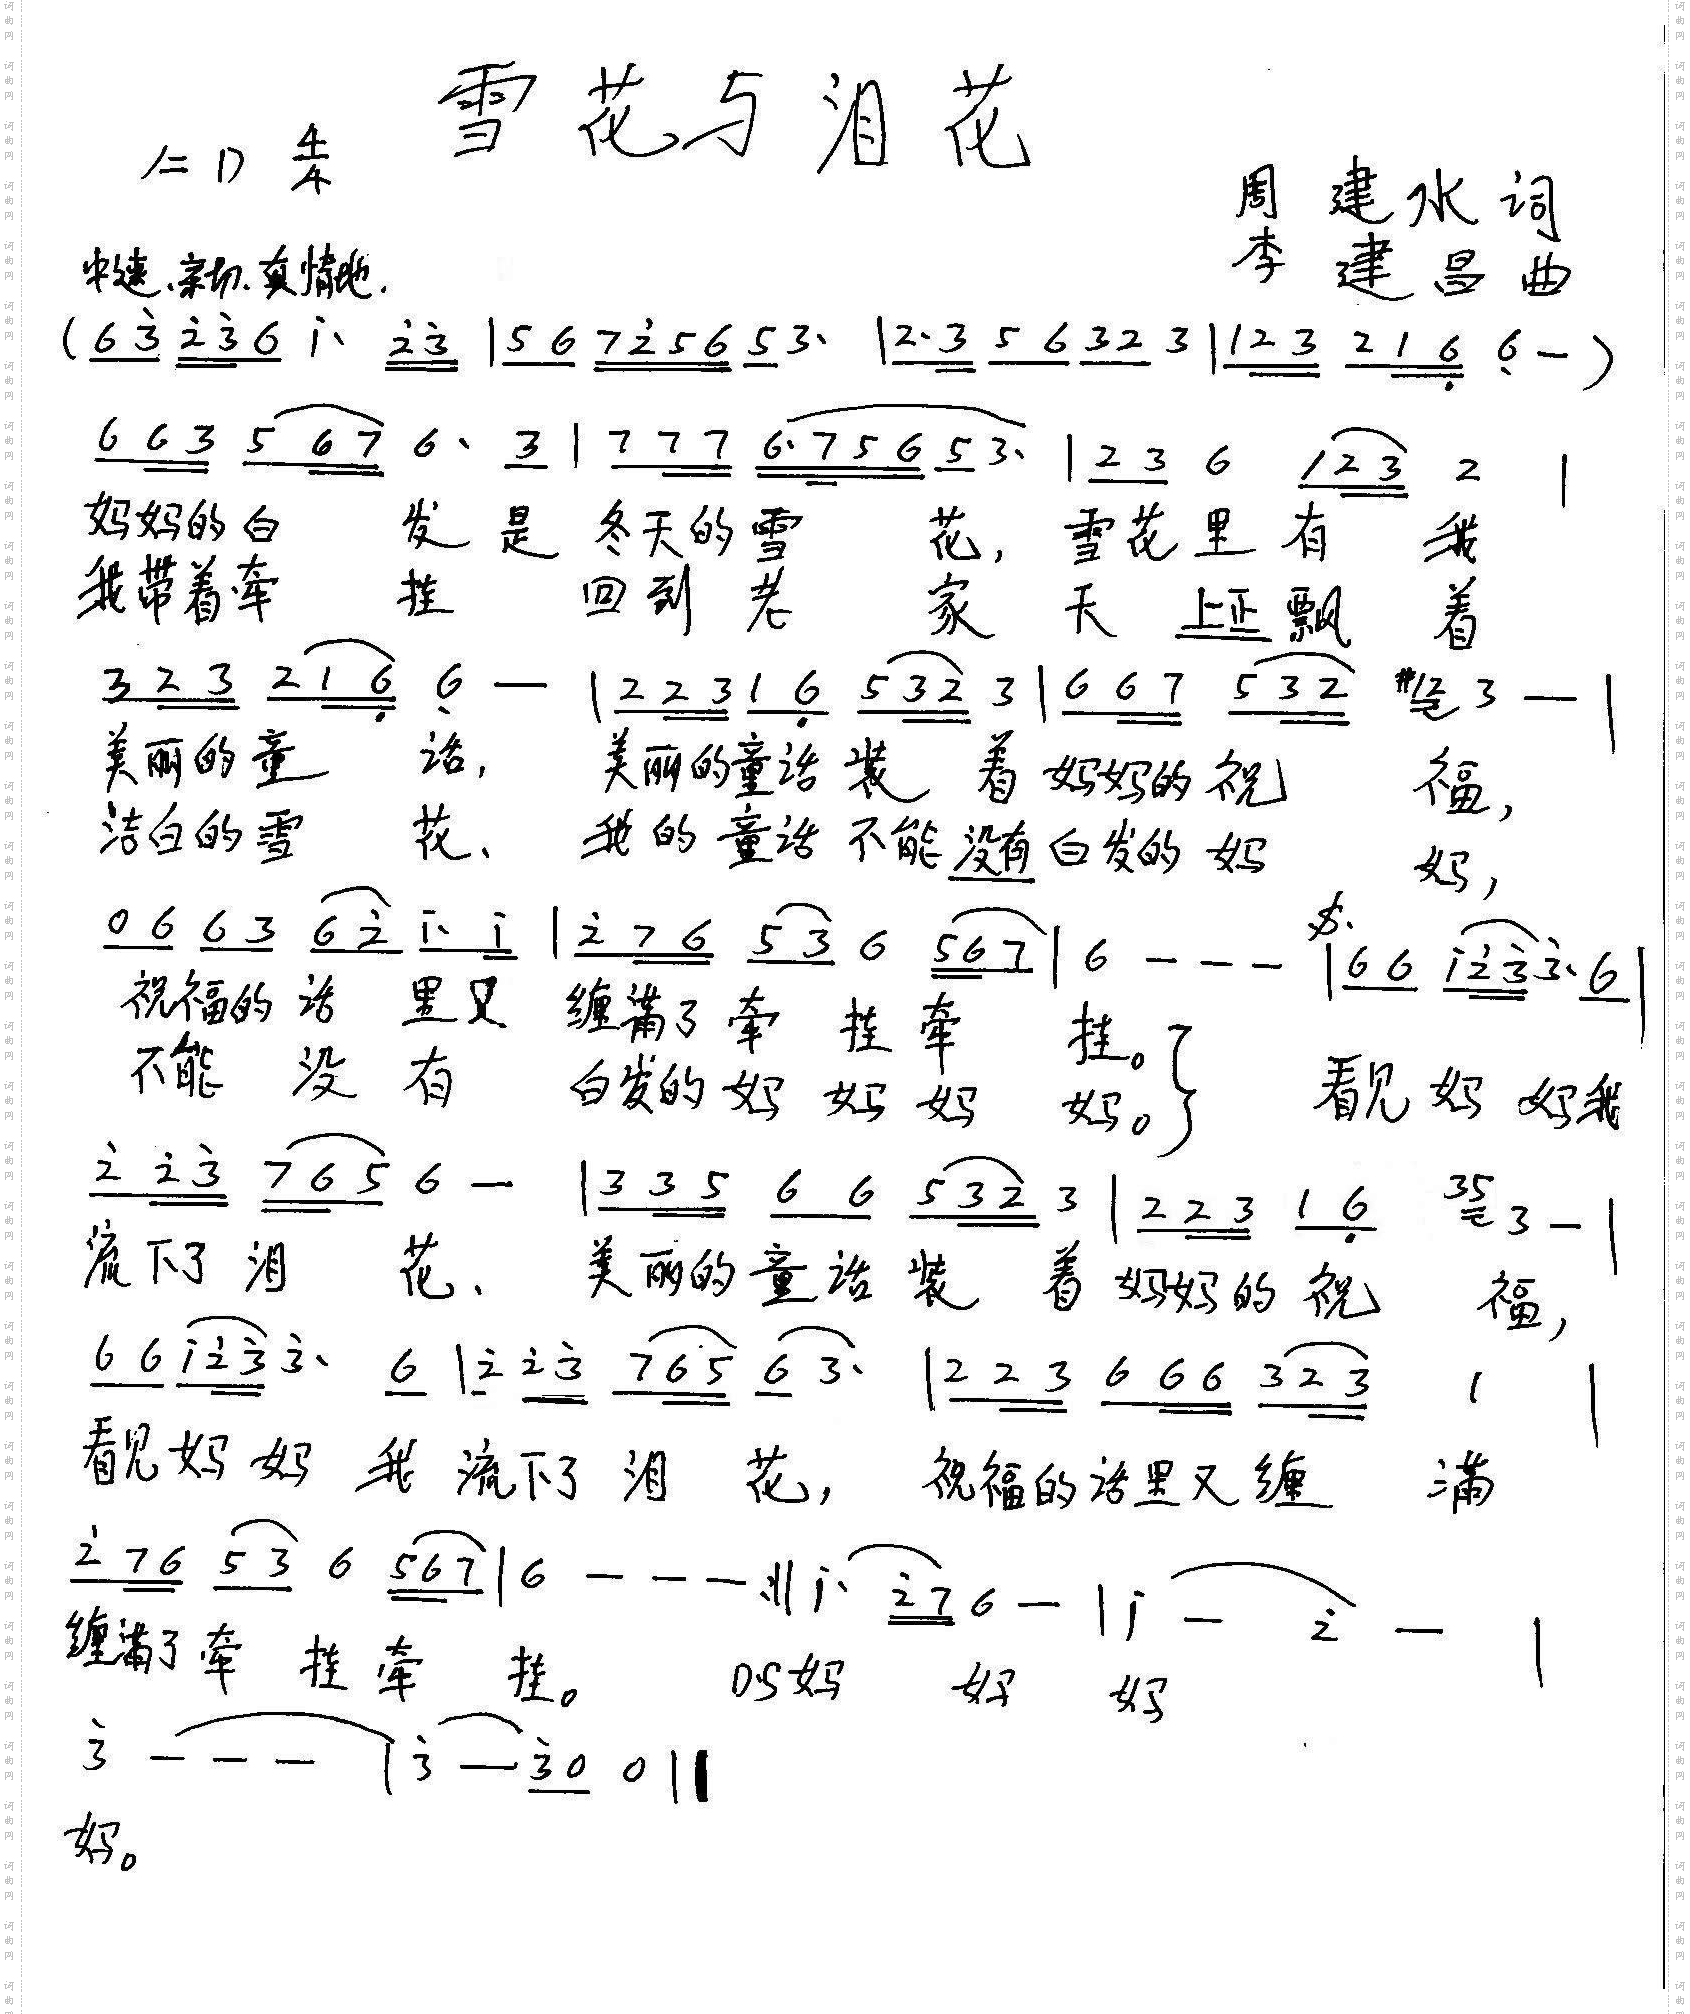 雪花与泪花
1=D 4/4
周建水词
李建昌曲
中速、亲切、真情地.
(6 3̇ 2̇ 3̇ 6 i· 2̇ 3̇ | 5 6 7 2̇ 5 6 5 3· | 2· 3 5 6 3 2 3 | 1 2 3 2 1 6̣ 6̣ — )
6 6 3 5 6 7 6· 3 | 7 7 7 6· 7 5 6 5 3· | 2 3 6 1 2 3 2 |
妈妈的白 发是 冬天的雪 花, 雪花里有 我
我带着牵 挂 回到老 家 天 上正飘 着
3 2 3 2 1 6̣ 6̣ — | 2 2 3 1 6̣ 5 3 2 3 | 6 6 7 5 3 2 #12 3 — |
美丽的童 话, 美丽的童话装 着 妈妈的祝 福,
洁白的雪 花、 我的童话不能没有白发的妈 妈,
0 6 6 3 6 2̇ i· i | 2̇ 7 6 5 3 6 5 6 7 | 6 — — — | 6 6 i 2̇ 3̇ 3̇· 6 |
祝福的话 里又 缠满了牵 挂牵 挂。
不能 没 有 白发的妈 妈妈 妈。 看见妈 妈我
2̇ 2̇ 3̇ 7 6 5 6 — | 3 3 5 6 6 5 3 2 3 | 2 2 3 1 6̣ 35 3 — |
流下了泪 花、 美丽的童话装 着 妈妈的祝 福,
6 6 i 2̇ 3̇ 3̇· 6 | 2̇ 2̇ 3̇ 7 6 5 6 3· | 2 2 3 6 6 6 3 2 3 1 |
看见妈 妈 我 流下了泪 花, 祝福的话里又缠 满
2̇ 7 6 5 3 6 5 6 7 | 6 — — — :‖ i· 2̇ 7 6 — | i — 2̇ — |
缠满了牵 挂牵 挂。 DS妈 妈 妈
3̇ — — — | 3̇ — 3̇ 0 0 ‖
妈。
词曲网